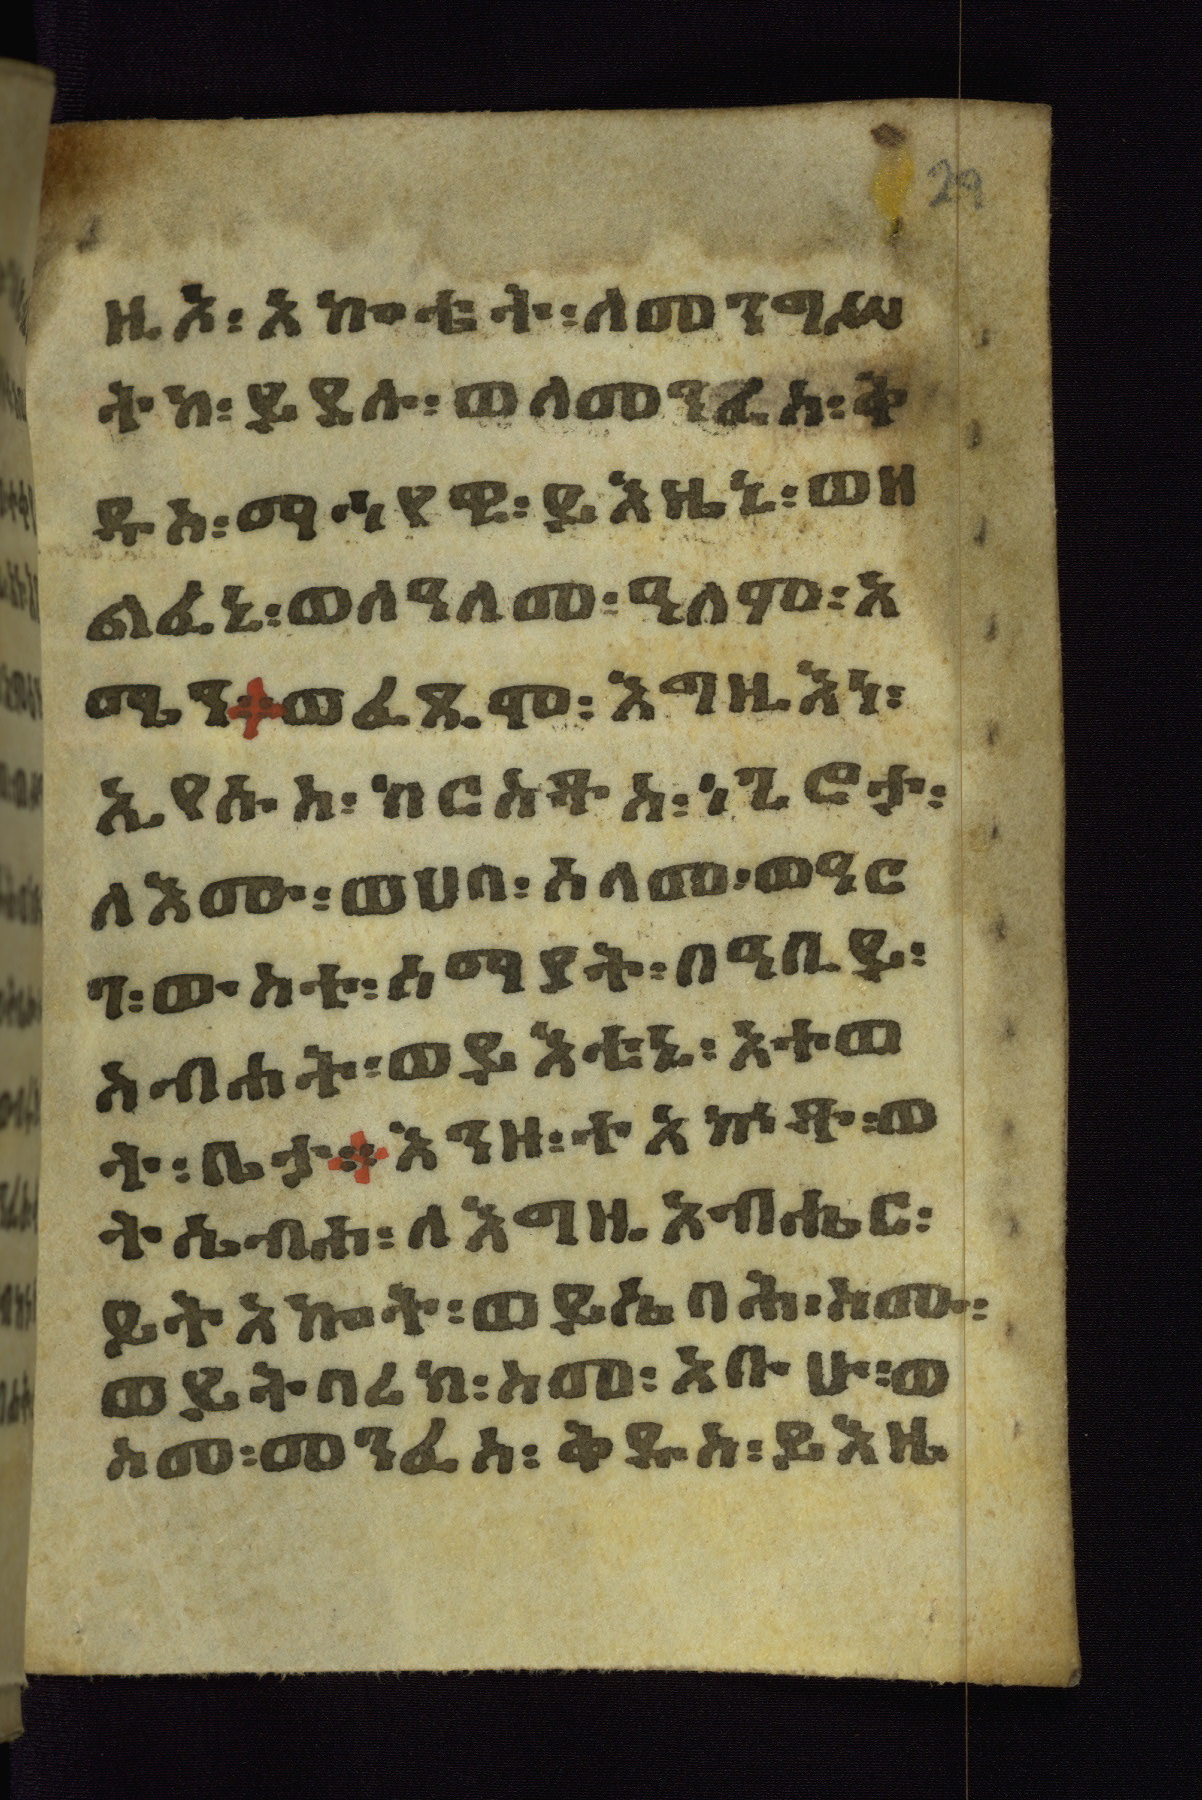 29
ዚእ፡ አኰቴት፡ ለመንግሥ
ትከ፡ ይደሉ፡ ወለመንፈስ፡ ቅ
ዱስ፡ ማኅየዊ፡ ይእዜኒ፡ ወዘ
ልፈኒ፡ ወለዓለመ፡ ዓለም፡ አ
ሜን፡ ወፈጺሞ፡ እግዚእነ፡
ኢየሱስ፡ ክርስቶስ፡ ነጊሮታ፡
ለእሙ፡ ወሀባ፡ ሰላመ፡ ወዓር
ገ፡ ውስተ፡ ሰማያት፡ በዓቢይ፡
ስብሐት፡ ወይእቲኒ፡ አተወ
ት፡ ቤታ፡ እንዘ፡ ተአኵት፡ ወ
ትሴብሕ፡ ለእግዚአብሔር፡
ይትአኰት፡ ወይሴባሕ፡ ስሙ፡
ወይትባረክ፡ ስመ፡ አቡሁ፡ ወ
ስመ፡ መንፈስ፡ ቅዱስ፡ ይእዜ